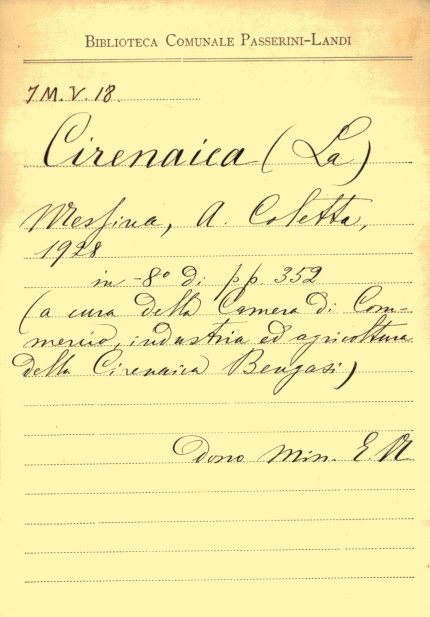 BIBLIOTECA COMUNALE PASSERINI-LANDI
7 M. V. 18.
Cirenaica (La)
Messina, A. Coletta,
1928
in -8° di pp. 352
(a cura della Camera di Com-
mercio, industria ed agricoltura
della Cirenaica Bengasi)
Dono Min. E. N.